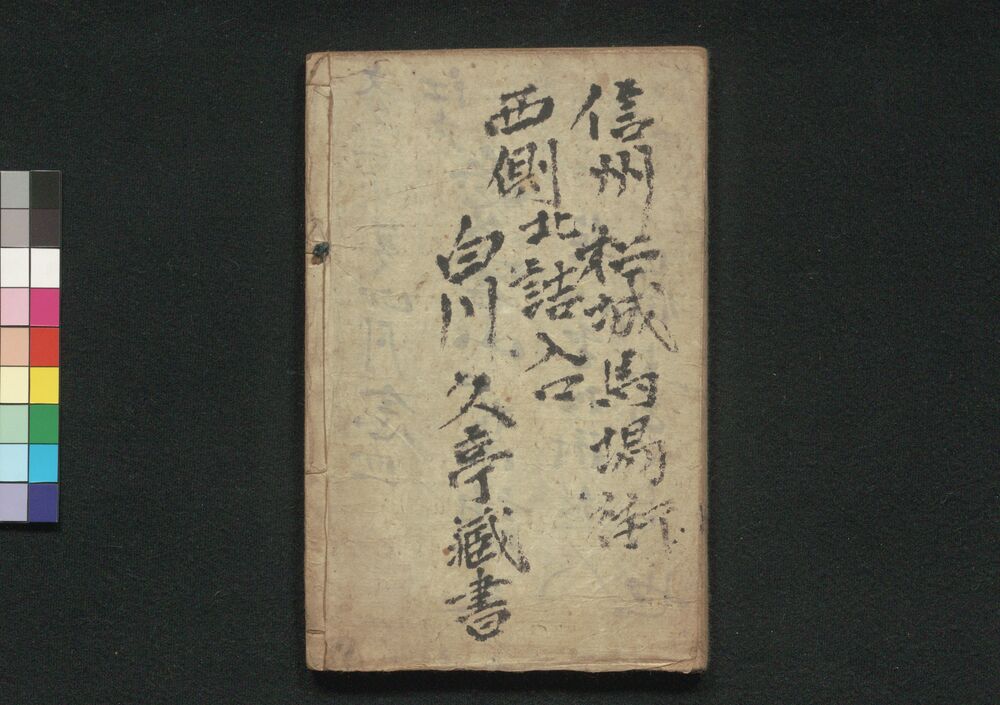 信州松城馬場街
西側北詰入口
白川久亭藏書